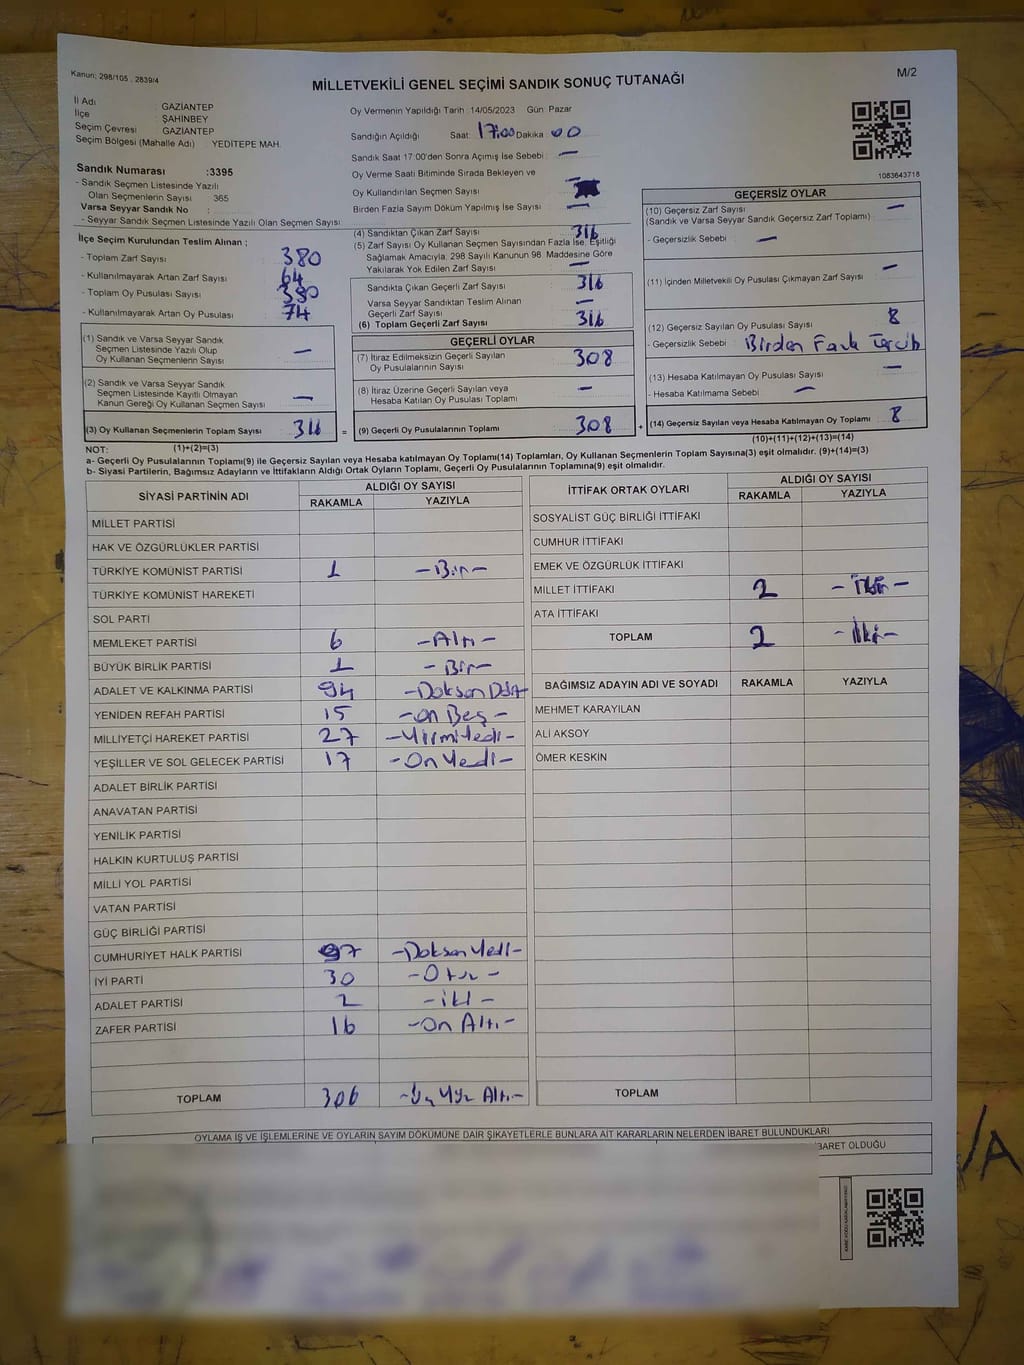 Kanun; 298/105 , 2839/4
MİLLETVEKİLİ GENEL SEÇİMİ SANDIK SONUÇ TUTANAĞI
M/2
İl Adı : GAZİANTEP
İlçe : ŞAHİNBEY
Seçim Çevresi : GAZİANTEP
Seçim Bölgesi (Mahalle Adı) YEDİTEPE MAH.
Sandık Numarası :3395
- Sandık Seçmen Listesinde Yazılı
Olan Seçmenlerin Sayısı 365
Varsa Seyyar Sandık No :
- Seyyar Sandık Seçmen Listesinde Yazılı Olan Seçmen Sayısı:
Oy Vermenin Yapıldığı Tarih :14/05/2023 Gün: Pazar
Sandığın Açıldığı Saat: 17:00 Dakika 00
Sandık Saat 17:00'den Sonra Açımış İse Sebebi : —
Oy Verme Saati Bitiminde Sırada Bekleyen ve
Oy Kullandırılan Seçmen Sayısı :
Birden Fazla Sayım Döküm Yapılmış İse Sayısı : —
1083643718
İlçe Seçim Kurulundan Teslim Alınan ;
- Toplam Zarf Sayısı : 380
- Kullanılmayarak Artan Zarf Sayısı : 64
- Toplam Oy Pusulası Sayısı : 380
- Kullanılmayarak Artan Oy Pusulası : 74
(1) Sandık ve Varsa Seyyar Sandık
Seçmen Listesinde Yazılı Olup
Oy Kullanan Seçmenlerin Sayısı : —
(2) Sandık ve Varsa Seyyar Sandık
Seçmen Listesinde Kayıtlı Olmayan
Kanun Gereği Oy Kullanan Seçmen Sayısı : —
(3) Oy Kullanan Seçmenlerin Toplam Sayısı : 316
(4) Sandıktan Çıkan Zarf Sayısı : 316
(5) Zarf Sayısı Oy Kullanan Seçmen Sayısından Fazla İse, Eşitliği
Sağlamak Amacıyla, 298 Sayılı Kanunun 98. Maddesine Göre
Yakılarak Yok Edilen Zarf Sayısı : —
Sandıkta Çıkan Geçerli Zarf Sayısı : 316
Varsa Seyyar Sandıktan Teslim Alınan
Geçerli Zarf Sayısı : —
(6) Toplam Geçerli Zarf Sayısı : 316
GEÇERLİ OYLAR
(7) İtiraz Edilmeksizin Geçerli Sayılan
Oy Pusulalarının Sayısı : 308
(8) İtiraz Üzerine Geçerli Sayılan veya
Hesaba Katılan Oy Pusulası Toplamı : —
= (9) Geçerli Oy Pusulalarının Toplamı : 308 +
GEÇERSİZ OYLAR
(10) Geçersiz Zarf Sayısı : —
(Sandık ve Varsa Seyyar Sandık Geçersiz Zarf Toplamı)
- Geçersizlik Sebebi : —
(11) İçinden Milletvekili Oy Pusulası Çıkmayan Zarf Sayısı : —
(12) Geçersiz Sayılan Oy Pusulası Sayısı : 8
- Geçersizlik Sebebi : Birden
(13) Hesaba Katılmayan Oy Pusulası Sayısı : —
- Hesaba Katılmama Sebebi : —
(14) Geçersiz Sayılan veya Hesaba Katılmayan Oy Toplamı : 8
NOT: (1)+(2)=(3)
(10)+(11)+(12)+(13)=(14)
a- Geçerli Oy Pusulalarının Toplamı(9) ile Geçersiz Sayılan veya Hesaba katılmayan Oy Toplamı(14) Toplamları, Oy Kullanan Seçmenlerin Toplam Sayısına(3) eşit olmalıdır. (9)+(14)=(3)
b- Siyasi Partilerin, Bağımsız Adayların ve İttifakların Aldığı Ortak Oyların Toplamı, Geçerli Oy Pusulalarının Toplamına(9) eşit olmalıdır.
SİYASİ PARTİNİN ADI ALDIĞI OY SAYISI
RAKAMLA YAZIYLA
MİLLET PARTİSİ
HAK VE ÖZGÜRLÜKLER PARTİSİ
TÜRKİYE KOMÜNİST PARTİSİ 1 -Bir-
TÜRKİYE KOMÜNİST HAREKETİ
SOL PARTİ
MEMLEKET PARTİSİ 6 -Altı-
BÜYÜK BİRLİK PARTİSİ 1 -Bir-
ADALET VE KALKINMA PARTİSİ 94 -Doksan
YENİDEN REFAH PARTİSİ 15 -On Beş-
MİLLİYETÇİ HAREKET PARTİSİ 27 -Yirmi Yedi-
YEŞİLLER VE SOL GELECEK PARTİSİ 17 -On Yedi-
ADALET BİRLİK PARTİSİ
ANAVATAN PARTİSİ
YENİLİK PARTİSİ
HALKIN KURTULUŞ PARTİSİ
MİLLİ YOL PARTİSİ
VATAN PARTİSİ
GÜÇ BİRLİĞİ PARTİSİ
CUMHURİYET HALK PARTİSİ 97 -Doksan Yedi-
İYİ PARTİ 30 -Otuz-
ADALET PARTİSİ 2 -iki-
ZAFER PARTİSİ 16 -On Altı-
TOPLAM 306 -Üç Yüz Altı-
İTTİFAK ORTAK OYLARI ALDIĞI OY SAYISI
RAKAMLA YAZIYLA
SOSYALİST GÜÇ BİRLİĞİ İTTİFAKI
CUMHUR İTTİFAKI
EMEK VE ÖZGÜRLÜK İTTİFAKI
MİLLET İTTİFAKI 2 -İki-
ATA İTTİFAKI
TOPLAM 2 -İki-
BAĞIMSIZ ADAYIN ADI VE SOYADI RAKAMLA YAZIYLA
MEHMET KARAYILAN
ALİ AKSOY
ÖMER KESKİN
TOPLAM
OYLAMA İŞ VE İŞLEMLERİNE VE OYLARIN SAYIM DÖKÜMÜNE DAİR ŞİKAYETLERLE BUNLARA AİT KARARLARIN NELERDEN İBARET BULUNDUKLARI
İBARET OLDUĞU